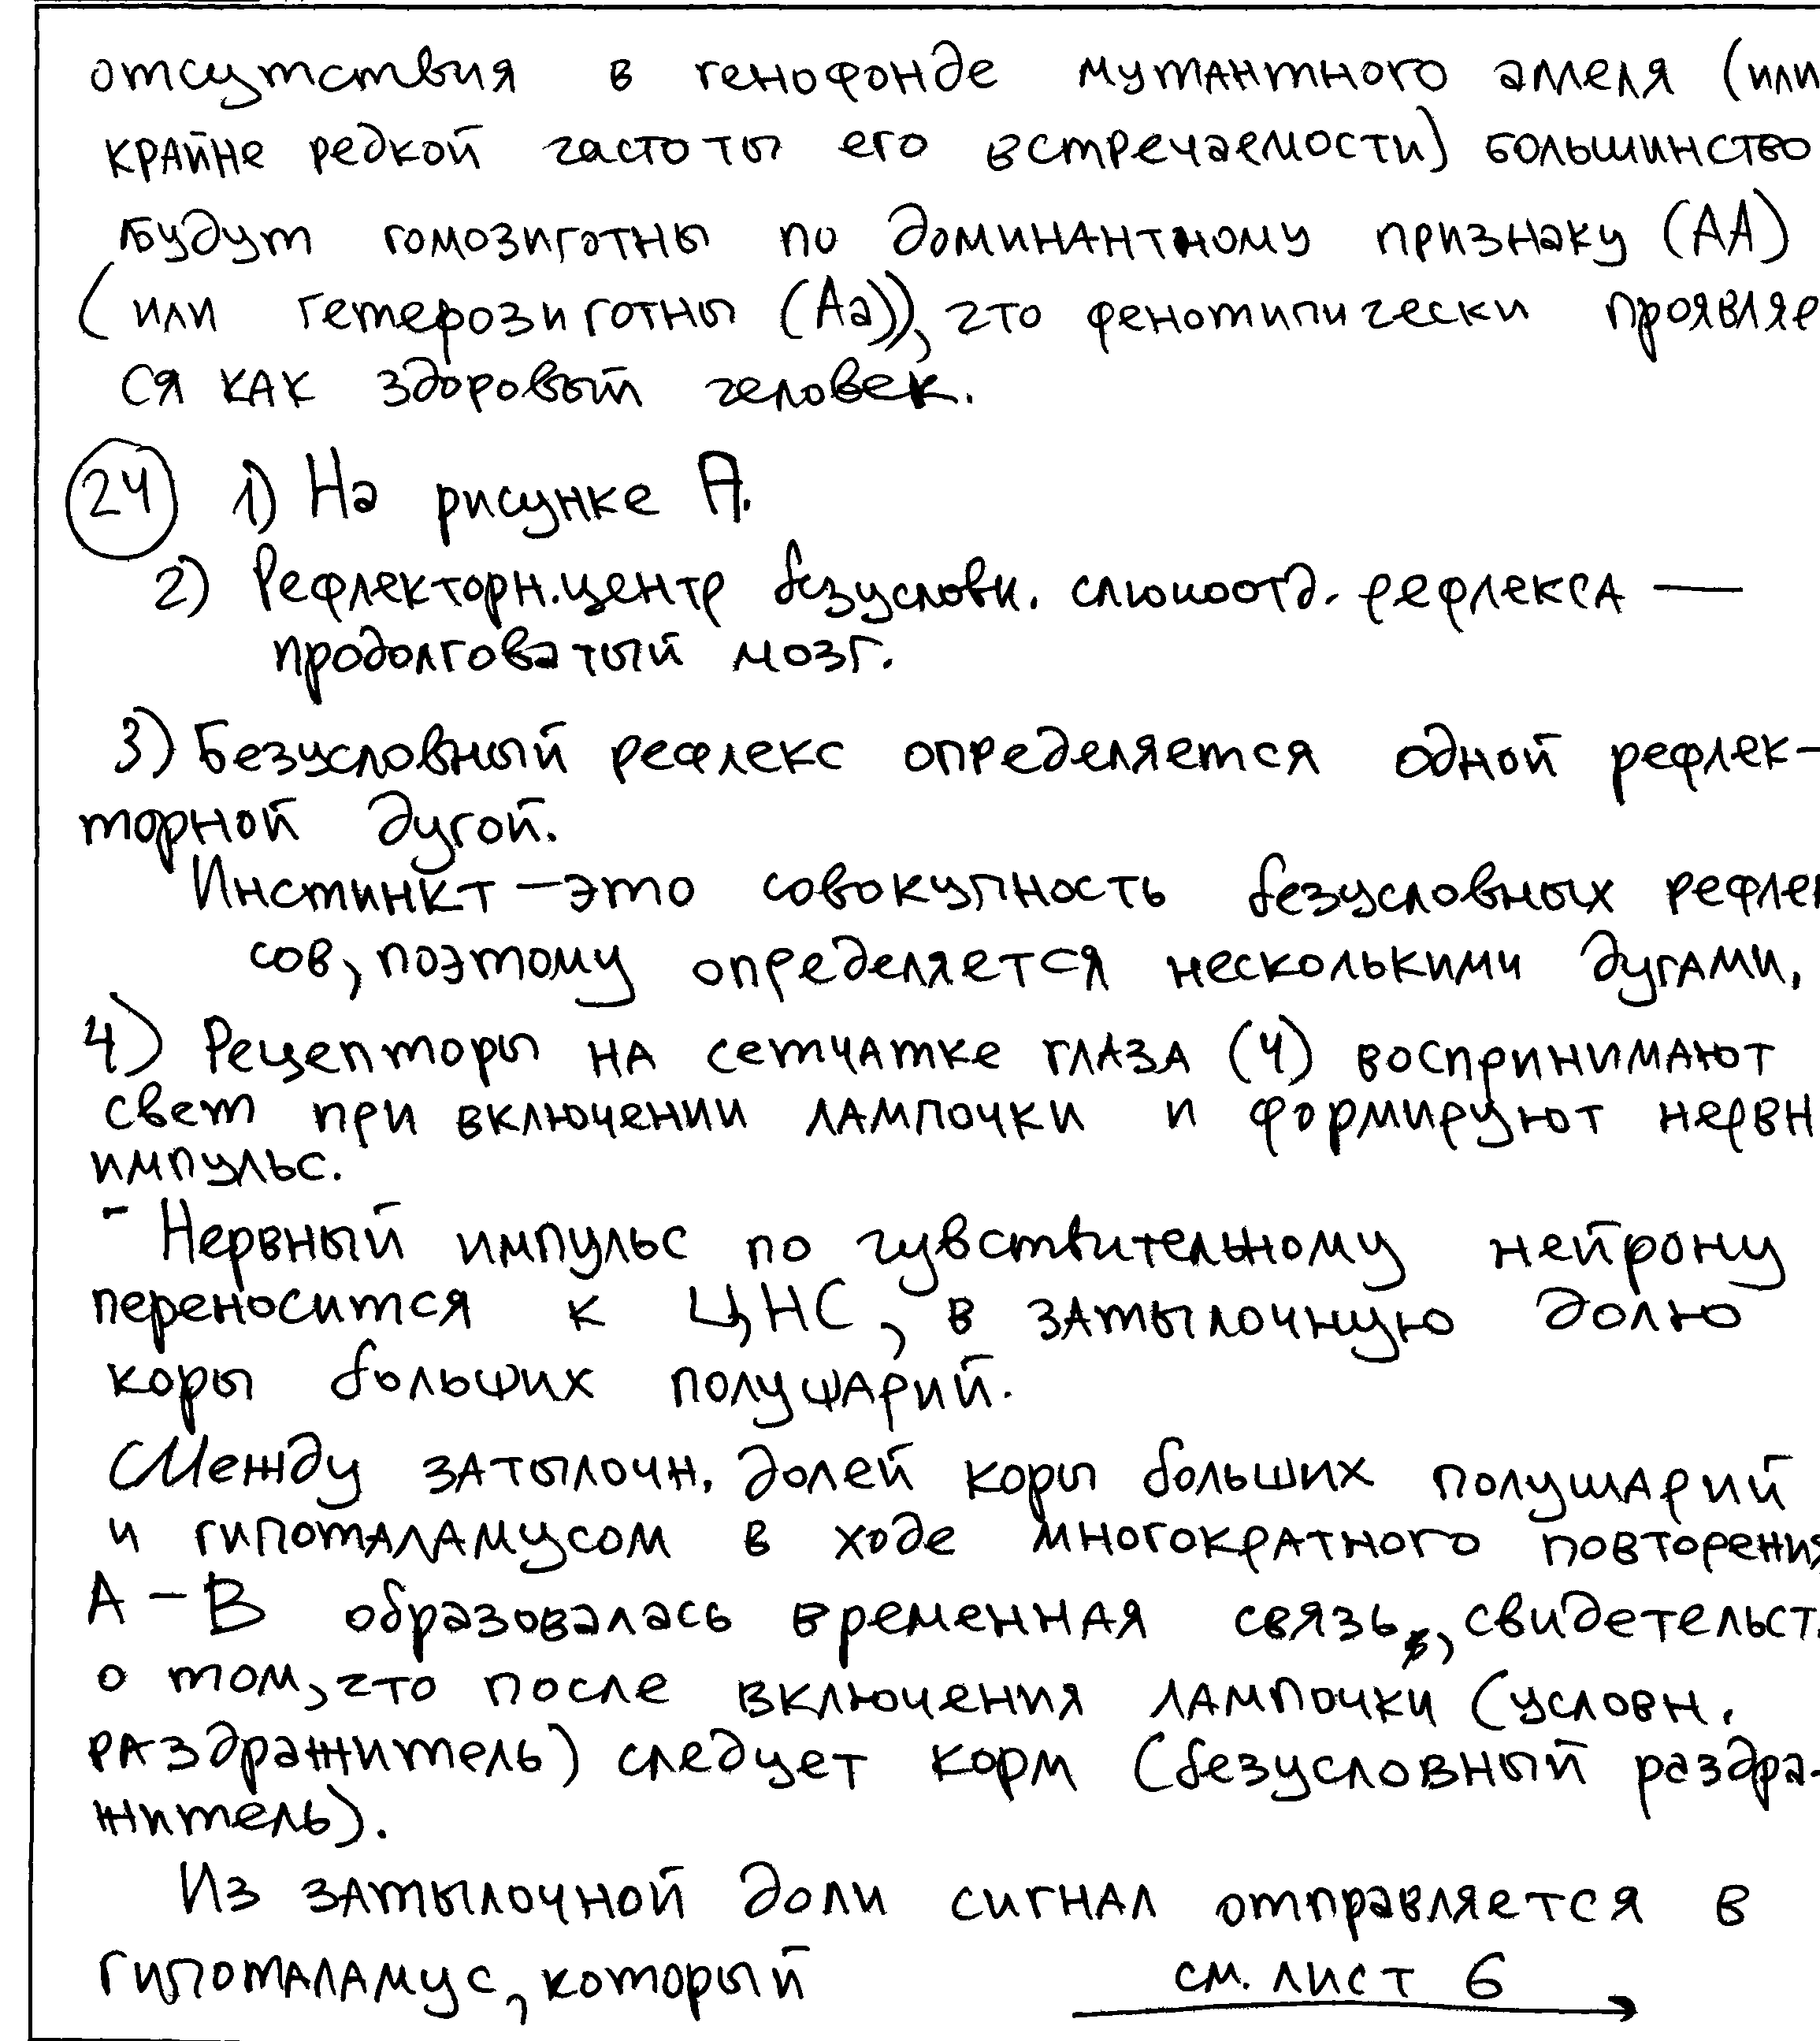 отсутствия в генофонде мутантного аллеля (или
крайне редкой частоты его встречаемости) большинство
будут гомозиготны по доминантному признаку (АА)
(или гетерозиготны (Аа)), что фенотипически проявляе
ся как здоровый человек.
24 1) На рисунке А.
2) Рефлекторн. центр безусловн. слюноотд. рефлекса —
продолговатый мозг.
3) Безусловный рефлекс определяется одной рефлек-
торной дугой.
Инстинкт — это совокупность безусловных рефлек
сов, поэтому определяется несколькими дугами.
4) Рецепторы на сетчатке глаза (4) воспринимают
свет при включении лампочки и формируют нервн
импульс.
- Нервный импульс по чувствительному нейрону
переносится к ЦНС, в затылочную долю
коры больших полушарий.
Между затылочн. долей коры больших полушарий
и гипоталамусом в ходе многократного повторения
А – В образовалась временная связь, свидетельст.
о том, что после включения лампочки (условн.
раздражитель) следует корм (безусловный раздра-
житель).
Из затылочной доли сигнал отправляется в
гипоталамус, который см. лист 6